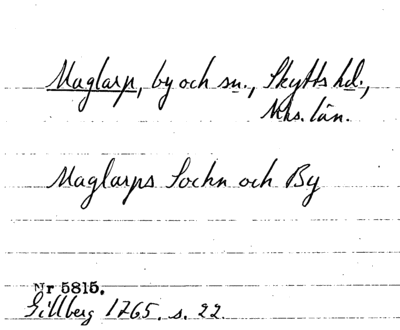 Maglarp, by och sn., Skytts hd.,
Mhs. län.
Maglarps Sochn och By
Nr 5815.
Gillberg 1765. s. 22.